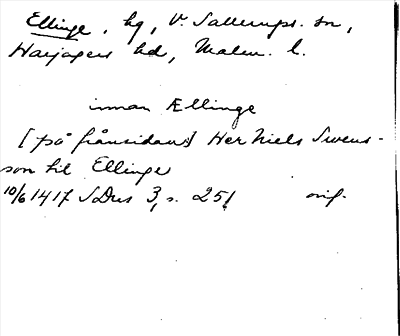 Ellinge, hg, V. Sallerups. sn,
Harjagers hd, Malm. l.
innan Ællinge
[på frånsidan] Her Niels Swens-
son til Ellinge
10/6 1417 SDns 3, s. 251 orig.